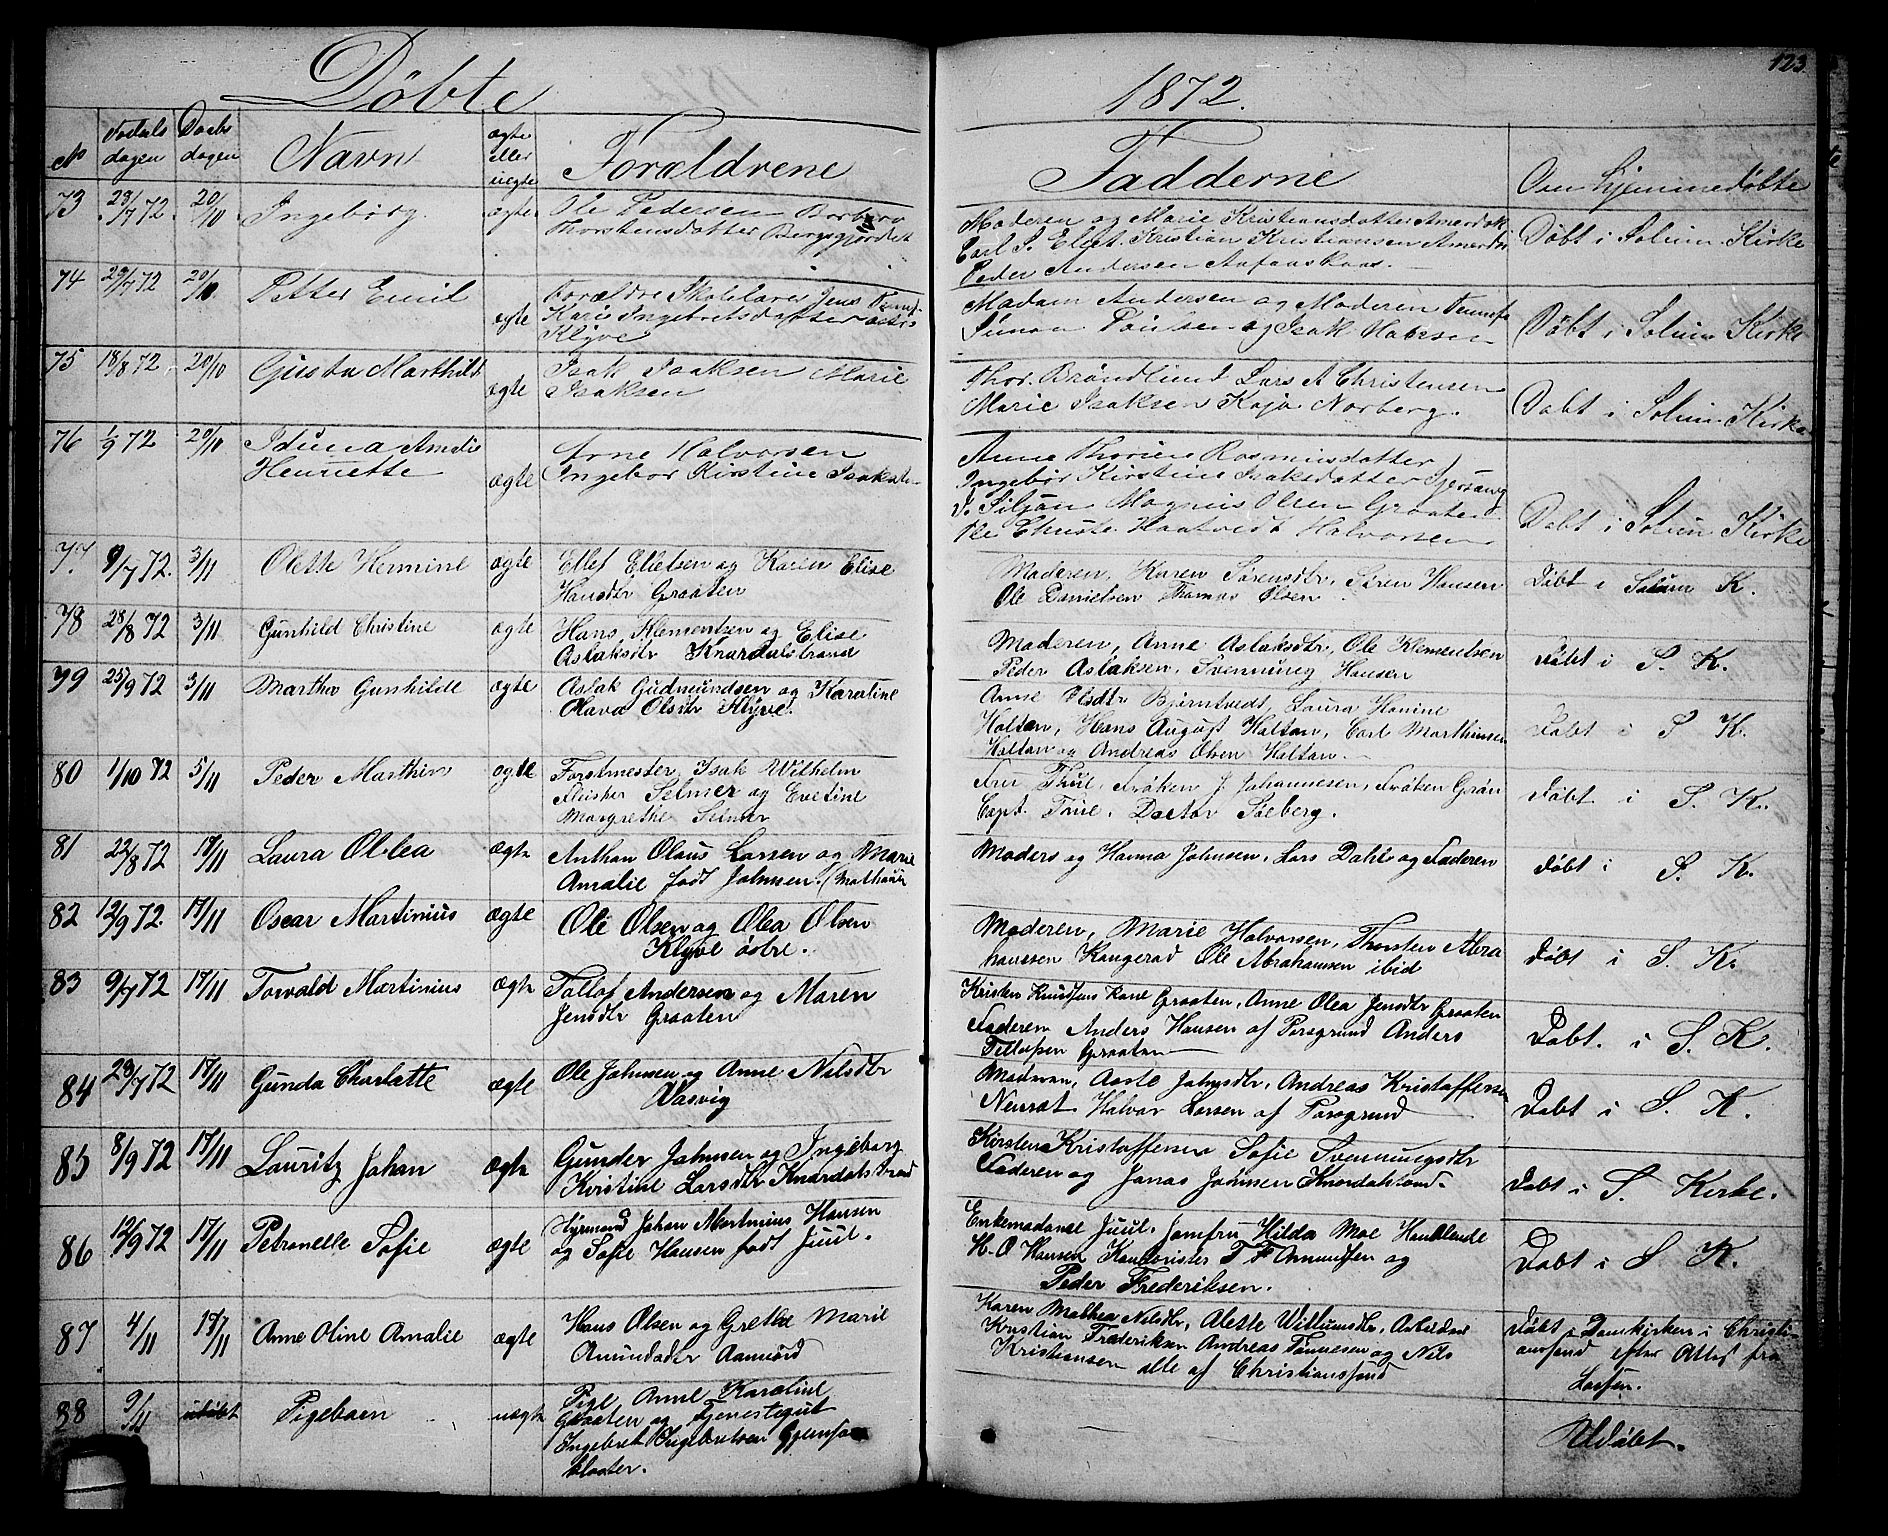 Døbte
1872.
123
No
Fødsels
dagen
Daabs
dagen
Navn
ægte
eller
uægte
Forældrene
Fadderne
Om hjemmedøbte
73 23/7 72. 20/10 Ingebørg. ægte Ole Pedersen Barbara
Thorstensdatter Bergsgjordet
Moderen og Marie Kristiansdatter
Carl S. Kristian Kristiansen
Peder Andersen
Døbt i Solum Kirke
74 29/7 72 20/10 Petter Emil ægte Forældre Skolelærer Jens
Karis Ingebretsdatter
Klyve
Madam Andersen og Moderen
Simon Poulsen og Isak
Døbt i Solum Kirke
75 18/8 72 20/10 Gusta Marthild ægte Isak Isaksen Marie
Isaksen
Thor. Brøndlund Lars A Christensen
Marie Isaksen Kaja Norberg.
Døbt i Solum Kirke
76 1/9 72 20/10 Iduna Amalie
Henriette ægte Arne Halvorsen
Ingebor Kirstine
Anne Thorine Rasmusdatter
Ingebør Kirstine Isaksdatter
Siljan Magnus Olsen Graaten
Ole Haatvedt Halvorsen
Døbt i Solum Kirke
77. 9/7 72. 3/11 Olette Hermine ægte Ellef Ellefsen og Karen Elise
Hansdtr Graaten
Moderen, Karen Sørensdtr, Søren Hansen
Ole Danielsen Thomas Olsen.
Døbt i Solum K.
78 28/8 72 3/11 Gunhild Christine ægte Hans Klementsen og Elise
Aslaksdtr Knardalstrand
Moderen, Anne Aslaksdtr, Ole Klementsen
Peder Aslaksen, Svennung Hansen
Døbt i S. K.
79 25/9 72 3/11 Marthe Gunhilde ægte Aslak Gudmundsen og Karoline
Olava Olsdtr Klyve.
Anne Olsdtr Bjørntvedt, Laura Hanine
Holtan, Hans August Holtan, Carl Marthinsen
Holtan og Andreas Olsen Holtan.
Døbt i S K.
80 1/10 72 5/11 Peder Marthin ægte Forstmester Isak Wilhelm
Selmer og Eveline
Margrethe Selmer
Fru Thue, Frøken J. Johannessen, Frøken Grøn
Capt. Thue. Doctor Solberg.
Døbt i S. K.
81 22/8 72 17/11 Laura Oblea ægte Anthon Olaus Larsen og Marie
Amalie født Johnsen.
Moders og Hanna Johnsen, Lars Dahl og Faderen
Døbt i S. K.
82 12/9 72. 17/11 Oscar Martinius ægte Ole Olsen og Olea Olsen
Klyve østre.
Moderen, Marie Halvorsen, Thorsten Abra
hamsen Kongerød Ole Abrahamsen ibid
Døbt i S. K.
83 9/7 72 17/11 Torvald Martinius ægte Tollof Andersen og Maren
Jensdtr Graaten
Kristen Knudsens Kone Graaten, Anne Olea Jensdtr Graaten
Faderen Anders Hansen af Porsgrund Anders
Tellefsen Graaten
Døbt. i S. K.
84 23/7 72 17/11 Gunda Charlotte ægte Ole Johnsen og Anne Nilsdtr
Vasvig
Moderen, Aaste Johnsdtr, Andreas Kristoffersen
Halvor Larsen af Porsgrund
Døbt i S. K.
85 8/9 72 17/11 Lauritz Johan ægte Gunder Johnsen og Ingeborg
Kirstine Larsdtr Knardalstrand
Kirsten Kristoffersen Sofie Svennungsdtr
Faderen og Jonas Johnsen
Døbt i S. Kirke.
86 12/9 72 17/11 Petronelle Sofie ægte Styrmand Johan Martinius Hansen
og Sofie Hansen født Juul.
Enkemadame Juul, Jomfru Hilda Moe Handlende
H. O Hansen Kontorister T F Amundsen og
Peder Frederiksen.
Døbt i S K.
87 4/11 17/11 Anne Oline Amalie ægte Hans Olsen og Grethe Marie
Amundsdtr
Karen Mathea Nilsdtr, Alette Villumsdtr, Arbeidsm
Kristian Frederiksen Andreas Tønnesen og Nils
Kristiansen alle af Christianssund
Døbt i Domkirken i Christi-
anssand efter Attest fra
88 9/11 udøbt Pigebarn uægte Pige Anne Karoline
Graaten og Tjenestegut
Ingebret Ingebretsen
kloster.
Udøbt.